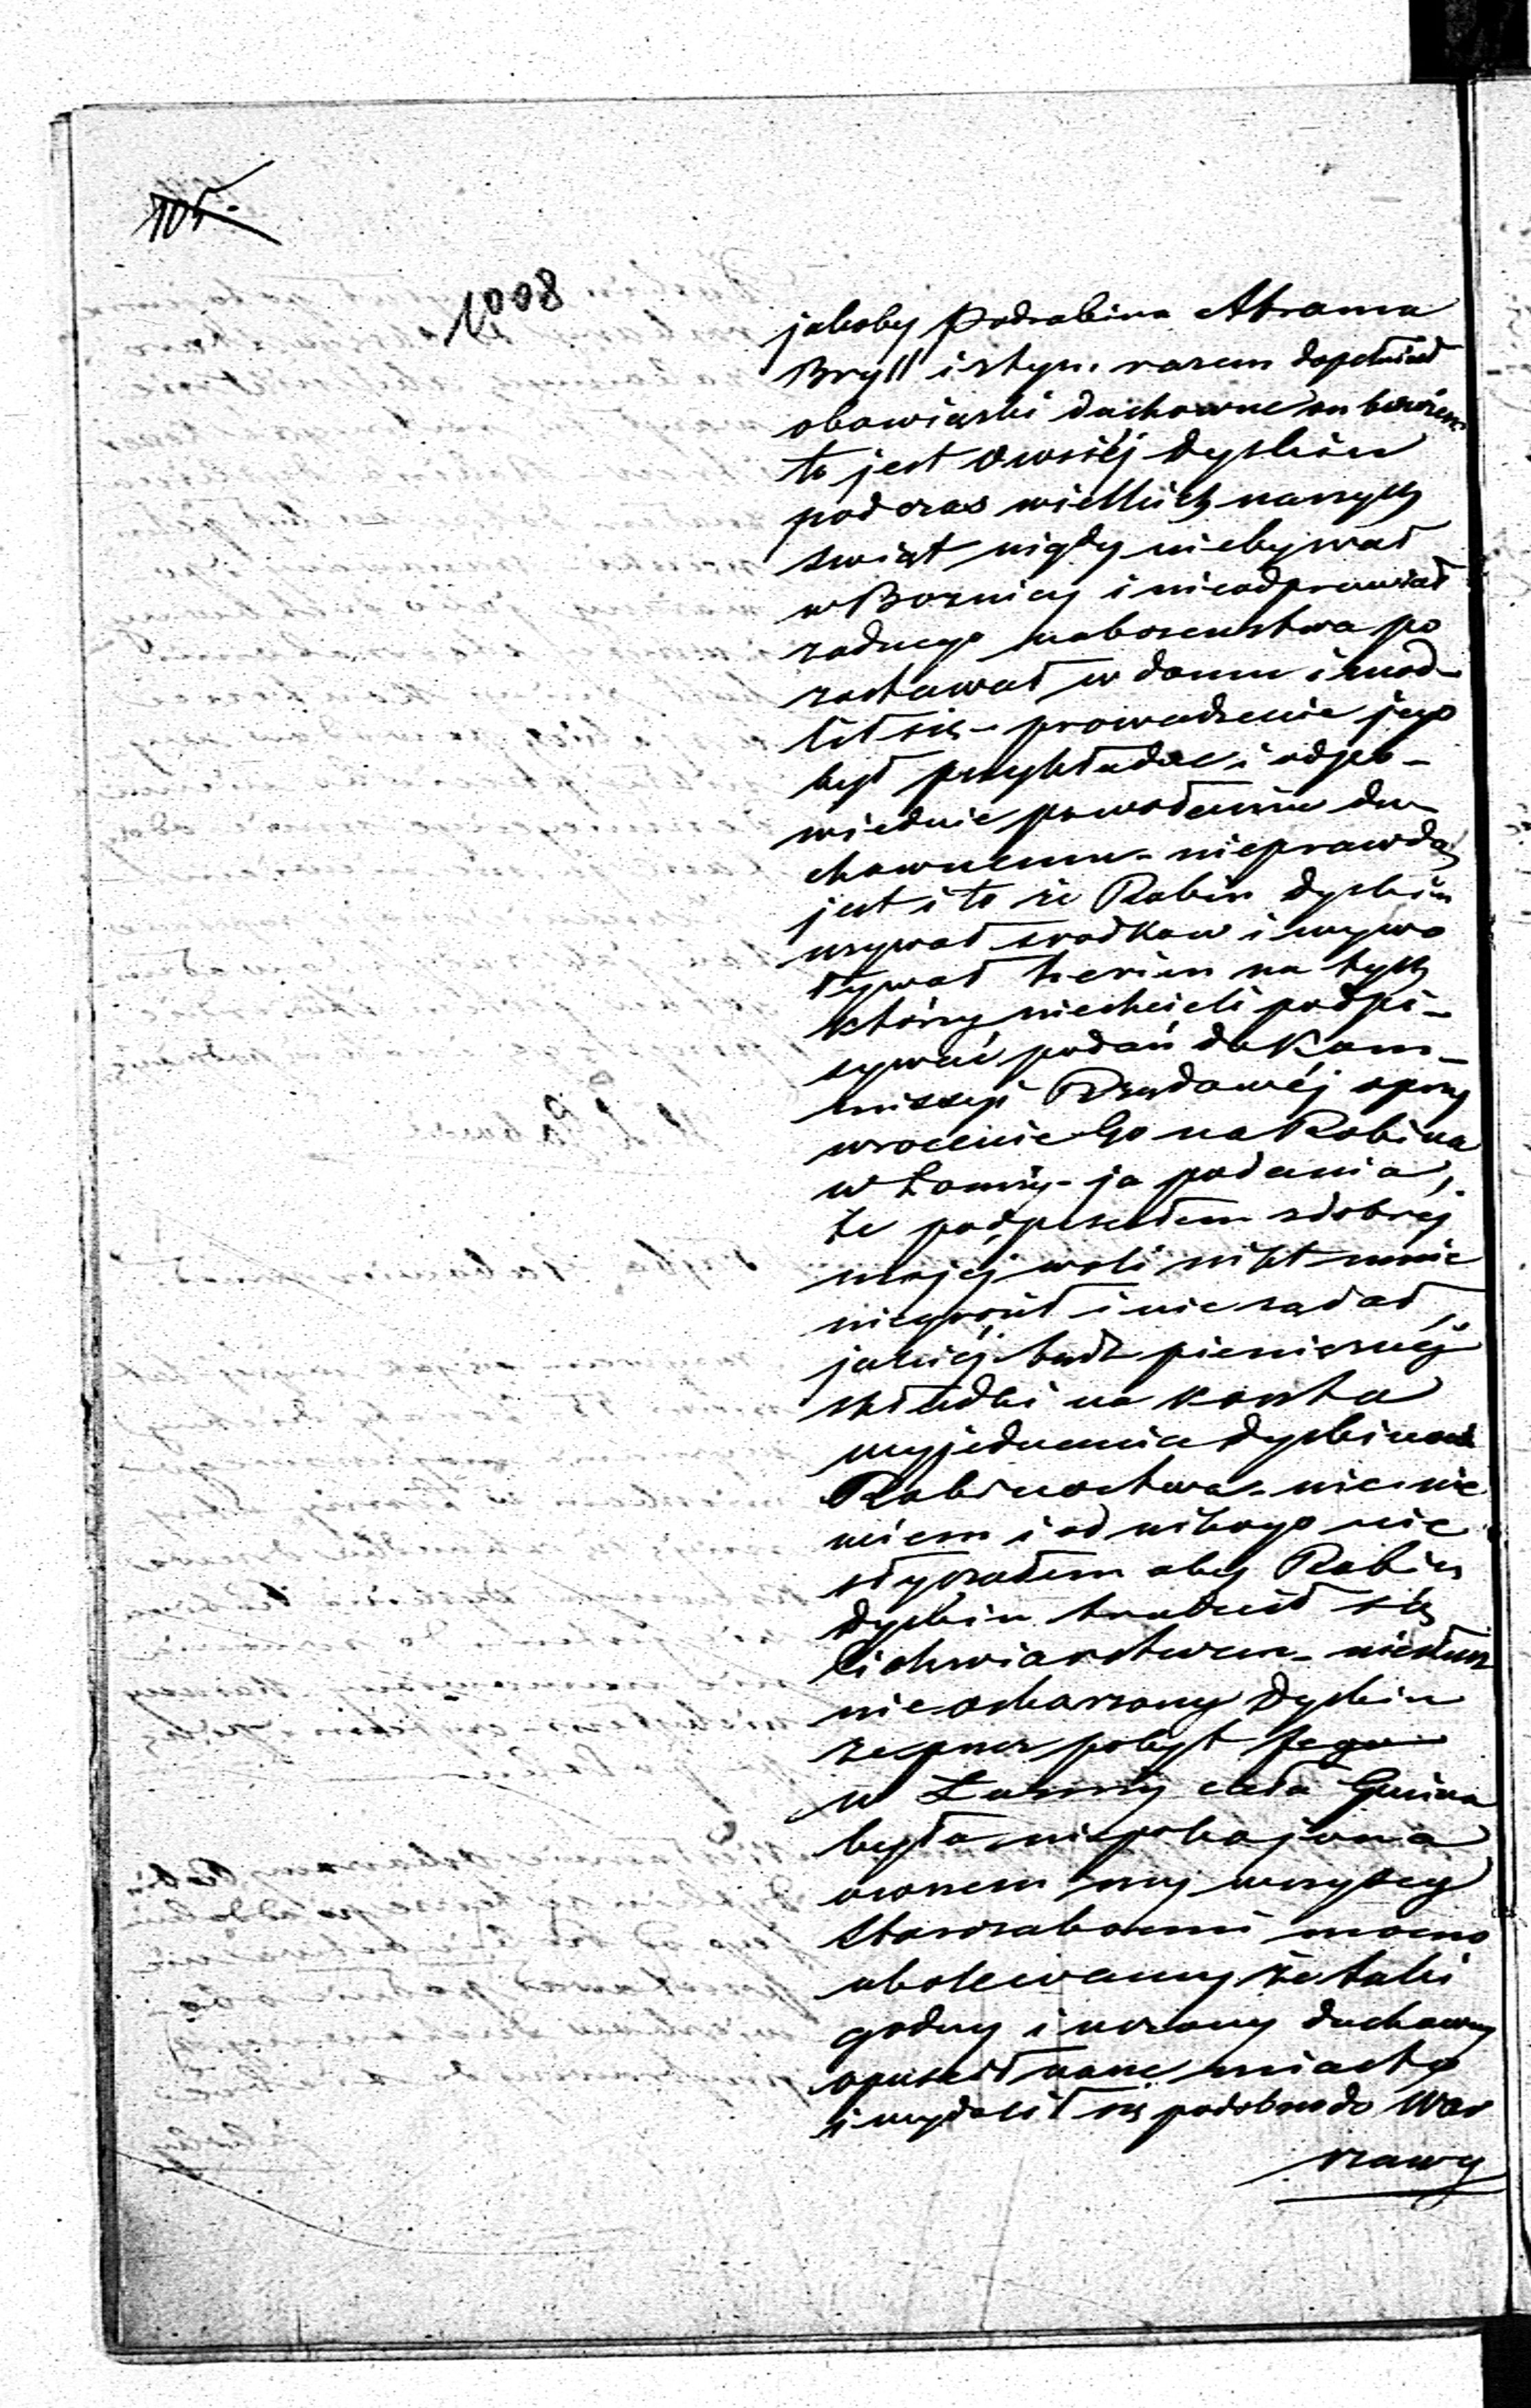 105.
1008
jakoby Podrabina Abrama
Bryll i stym. razem dopełniał
obowiązki duchowne on bowiem
to jest Owsiéj Dyskin
podczas wielkich naszych
swiąt nigdy niebywał
w Boznicy i nieodprawiał
zadnego nabozenstwa po
zostawał w domu i mod-
lił się - prowadzenie jego
był przykładne i odpo-
wiednie powołaniu du-
chownemu - nieprawdą
jest i to że Rabin Dyskin
uzywał srodkow i wywo
ływał herim na tych
którzy niechcieli podpi-
sywać podań do Kom-
missyi Rządowéj o przy
wrocenie Go na Rabina
w Łomży - ja podania,
te podpisałem zdobréj
mojéj woli nikt mnie
niegroził i nie ządał
jakiéj bądź pienięznéj
składki na koszta
wyjednania Dyskinowi
Rabinostwa - nic nie
wiem i od nikogo nie
słyszałem aby Rabin
Dyskin trudnił się
lichwiarstwem - niesłusz
nie oskarzony Dyskin
ze przez pobyt Jego
w Łomży cała Gmina
była niepokojona
owszem my wszyscy
Starozakonni mocno
ubolewamy że taki
godny i uczony duchowny
opuscił nasze miasto
i wydalił się podobno do War
szawy